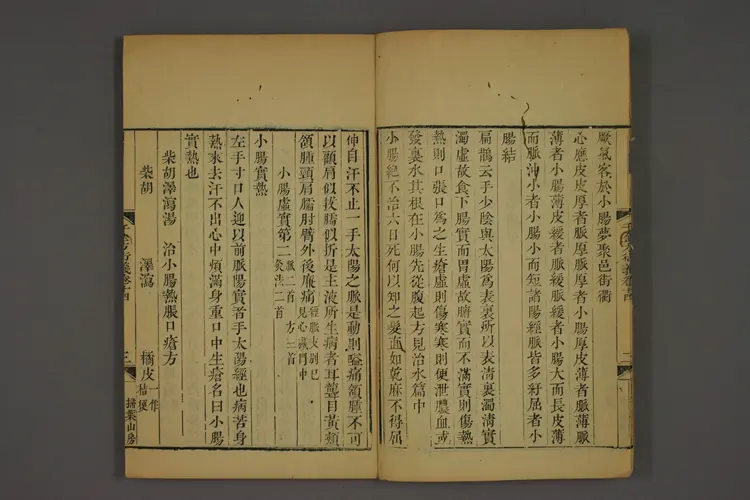 厥氣客於小腸夢聚邑街衢
心應皮皮厚者脈厚脈厚者小腸厚皮薄者脈薄脈
薄者小腸薄皮緩者脈緩脈緩者小腸大而長皮薄
而脈沖小者小腸小而短諸陽經脈皆多紆屈者小
腸結
扁鵲云手少陰與太陽為表裏所以表清裏濁清實
濁虛故食下腸實而胃虛故腑實而不滿實則傷熱
熱則口張口為之生瘡虛則傷寒寒則便泄膿血或
發裏水其根在小腸先從腹起方見治水篇中
小腸絕不治六日死何以知之髮直如乾麻不得屈
二
伸自汗不止一手太陽之脈是動則嗌痛頷腫不可
以顧肩似拔臑似折是主液所生病者耳聾目黃頰
頷腫頸肩臑肘臂外後廉痛經脈支別已見心臟門中
小腸虛實第二脈二首 方二首 灸法二首
小腸實熱
左手寸口人迎以前脈陽實者手太陽經也病苦身
熱來去汗不出心中煩滿身重口中生瘡名曰小腸
實熱也
柴胡澤瀉湯 治小腸熱脹口瘡方
柴胡 澤瀉 橘皮一作桔梗
三
掃葉山房